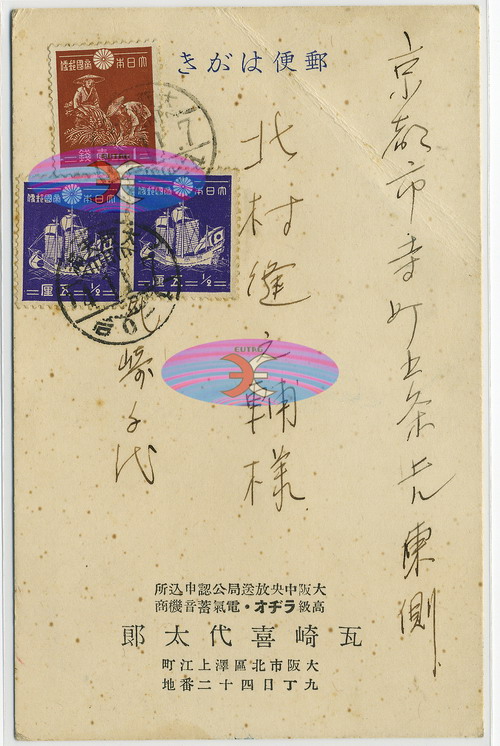 郵便はがき
京都市寺町五条上ル東側
北村縫之輔様
大日本帝國郵便
壹錢
大日本帝國郵便
1/2 五厘
大日本帝國郵便
1/2 五厘
崎千代
EUTRC
大阪中央放送局公認申込所
高級ラヂオ・電氣蓄音機商
瓦崎喜代太郎
大阪市北區澤上江町
九丁目四十二番地